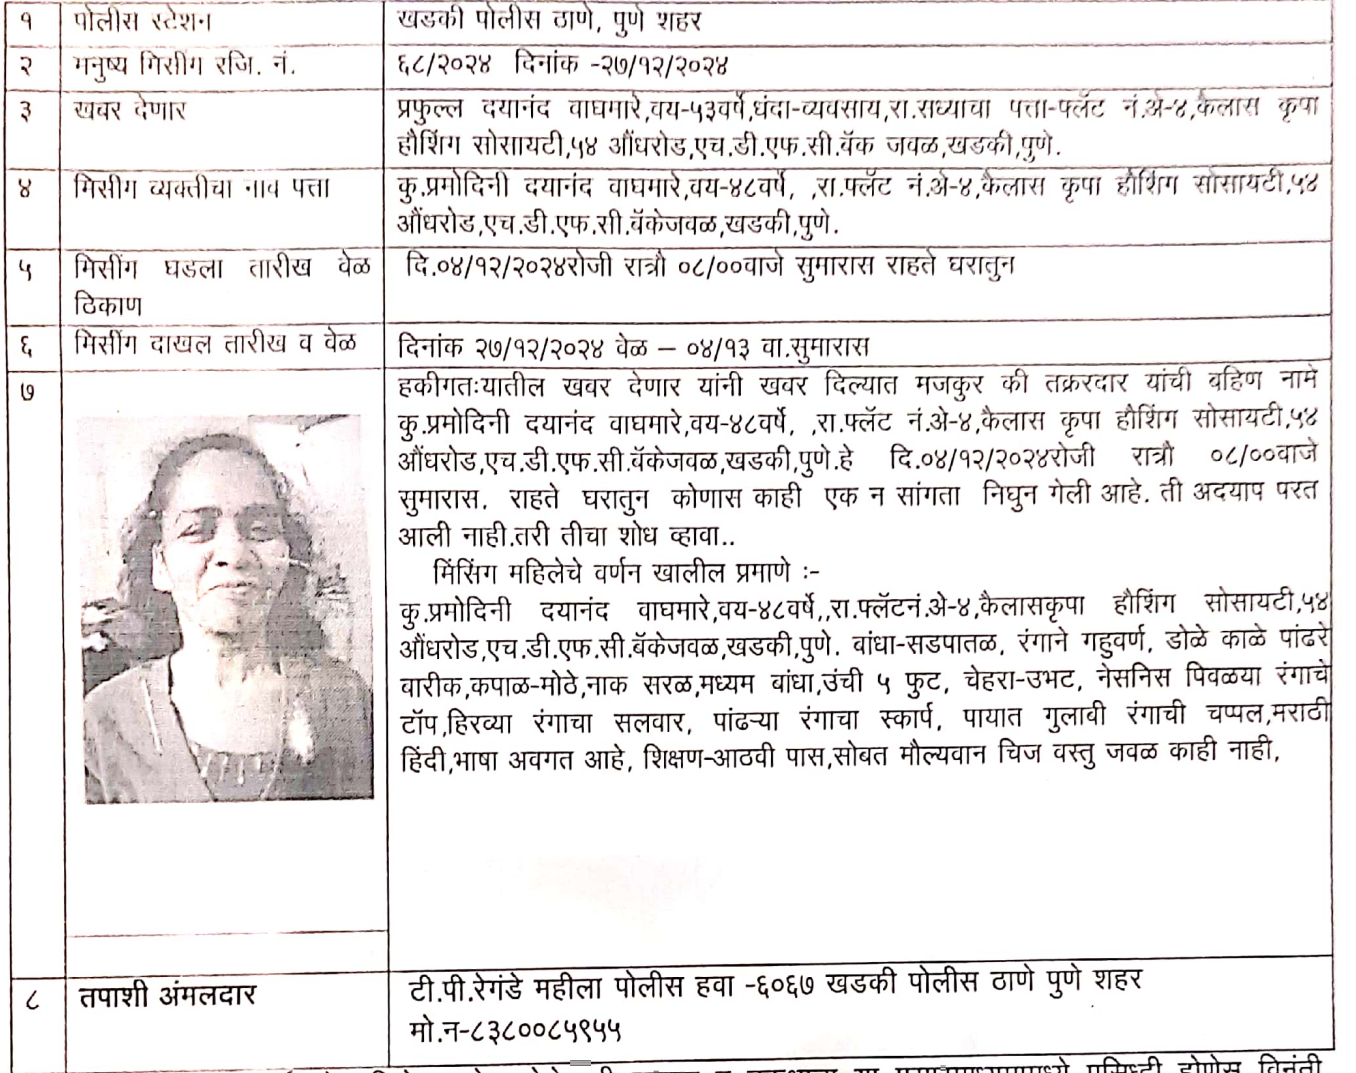 १ पोलीस स्टेशन खडकी पोलीस ठाणे, पुणे शहर
२ मनुष्य मिसींग रजि. नं. ६८/२०२४ दिनांक -२७/१२/२०२४
३ खबर देणार प्रफुल्ल दयानंद वाघमारे,वय-५३वर्षे,धंदा-व्यवसाय,रा.सध्याचा पत्ता-फ्लॅट नं.अे-४,कैलास कृपा
हौशिंग सोसायटी,५४ औंधरोड,एच.डी.एफ.सी.बॅक जवळ,खडकी,पुणे.
४ मिसीग व्यक्तीचा नाव पत्ता कु.प्रमोदिनी दयानंद वाघमारे,वय-४८वर्षे, ,रा.फ्लॅट नं.अे-४,कैलास कृपा हौशिंग सोसायटी,५४
औंधरोड,एच.डी.एफ.सी.बॅकेजवळ,खडकी,पुणे.
५ मिसींग घडला तारीख वेळ दि.०४/१२/२०२४रोजी रात्रौ ०८/००वाजे सुमारास राहते घरातुन
ठिकाण
६ मिसींग दाखल तारीख व वेळ दिनांक २७/१२/२०२४ वेळ – ०४/१३ वा.सुमारास
७ हकीगतःयातील खबर देणार यांनी खबर दिल्यात मजकुर की तक्ररदार यांची बहिण नामे
कु.प्रमोदिनी दयानंद वाघमारे,वय-४८वर्षे, ,रा.फ्लॅट नं.अे-४,कैलास कृपा हौशिंग सोसायटी,५४
औंधरोड,एच.डी.एफ.सी.बॅकेजवळ,खडकी,पुणे.हे दि.०४/१२/२०२४रोजी रात्रौ ०८/००वाजे
सुमारास. राहते घरातुन कोणास काही एक न सांगता निघुन गेली आहे. ती अदयाप परत
आली नाही.तरी तीचा शोध व्हावा..
मिंसिंग महिलेचे वर्णन खालील प्रमाणे :-
कु.प्रमोदिनी दयानंद वाघमारे,वय-४८वर्षे,,रा.फ्लॅटनं.अे-४,कैलासकृपा हौशिंग सोसायटी,५४
औंधरोड,एच.डी.एफ.सी.बॅकेजवळ,खडकी,पुणे. बांधा-सडपातळ, रंगाने गहुवर्ण, डोळे काळे पांढरे
बारीक,कपाळ-मोठे,नाक सरळ,मध्यम बांधा,उंची ५ फुट, चेहरा-उभट, नेसनिस पिवळया रंगाचे
टॉप,हिरव्या रंगाचा सलवार, पांढऱ्या रंगाचा स्कार्प, पायात गुलाबी रंगाची चप्पल,मराठी
हिंदी,भाषा अवगत आहे, शिक्षण-आठवी पास,सोबत मौल्यवान चिज वस्तु जवळ काही नाही,
८ तपाशी अंमलदार टी.पी.रेगंडे महीला पोलीस हवा -६०६७ खडकी पोलीस ठाणे पुणे शहर
मो.न-८३८००८५९५५